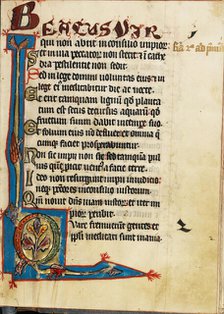 BEATUS VIR
qui non abiit in consilio impior
et in via peccatorum non stetit et in cathe
dra pestilentie non sedit
Sed in lege domini voluntas eius et in
lege eius meditabitur die ac nocte
Et erit tamquam lignum quod planta
tum est secus decursus aquarum quod
fructum suum dabit in tempore suo
Et folium eius non defluet et omnia
quecumque faciet prosperabuntur
Non sic impii non sic sed tamquam pul
uis quem proicit ventus a facie terre
Ideo non resurgunt impii in iudicio
neque peccatores in consilio iustorum
Quoniam nouit dominus viam iustorum et iter im
piorum peribit
Quare fremuerunt gentes et
populi meditati sunt inania